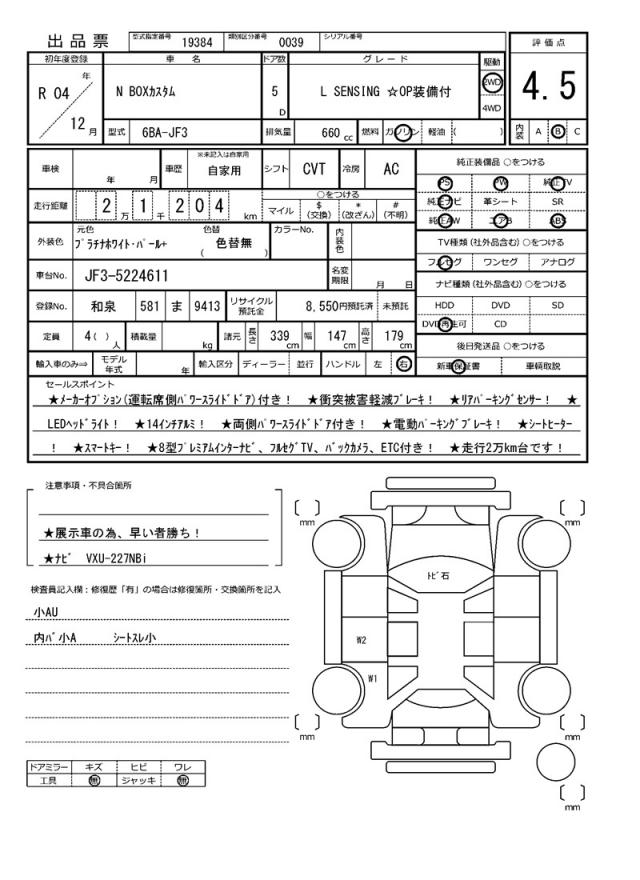 出品票 型式指定番号 19384 類別区分番号 0039 シリアル番号
評価点
4.5
内装 A B C
初年度登録 車名 ドア数 グレード 駆動
R 04 年 12 月 N BOXカスタム 5 D L SENSING ☆OP装備付 2WD 4WD
型式 6BA-JF3 排気量 660 cc 燃料 ガソリン 軽油 ( )
車検 年 月 車歴 ※未記入は自家用 自家用 シフト CVT 冷房 AC
走行距離 2万 1千 2 0 4 km ○をつける マイル $(交換) *(改ざん) #(不明)
外装色 元色 プラチナホワイト・パール+ 色替 ( 色替無 ) カラーNo. 内装色
車台No. JF3-5224611 名変期限 月 日
登録No. 和泉 581 ま 9413 リサイクル預託金 8,550円預託済 未預託
定員 4( )人 積載量 kg 諸元 長さ 339cm 幅 147cm 高さ 179cm
輸入車のみ⇒ モデル年式 年 輸入区分 ディーラー 並行 ハンドル 左 右
純正装備品 ○をつける
PS PW 純正TV
純正ナビ 革シート SR
純正AW エアB ABS
TV種類(社外品含む)○をつける
フルセグ ワンセグ アナログ
ナビ種類(社外品含む)○をつける
HDD DVD SD
DVD再生可 CD
後日発送品 ○をつける
新車保証書 車輌取説
セールスポイント
★メーカーオプション(運転席側パワースライドドア)付き! ★衝突被害軽減ブレーキ! ★リアパーキングセンサー! ★
LEDヘッドライト! ★14インチアルミ! ★両側パワースライドドア付き! ★電動パーキングブレーキ! ★シートヒーター
! ★スマートキー! ★8型プレミアムインターナビ、フルセグTV、バックカメラ、ETC付き! ★走行2万km台です!
注意事項・不具合箇所
★展示車の為、早い者勝ち!
★ナビ VXU-227NBi
検査員記入欄:修復歴「有」の場合は修復箇所・交換箇所を記入
小AU
内バ小A シートスレ小
ドアミラー キズ ヒビ ワレ
工具 無 ジャッキ 無
[ ] mm
[ ] mm
トビ石
W2
W1
[ ] mm
[ ] mm
[ ] mm